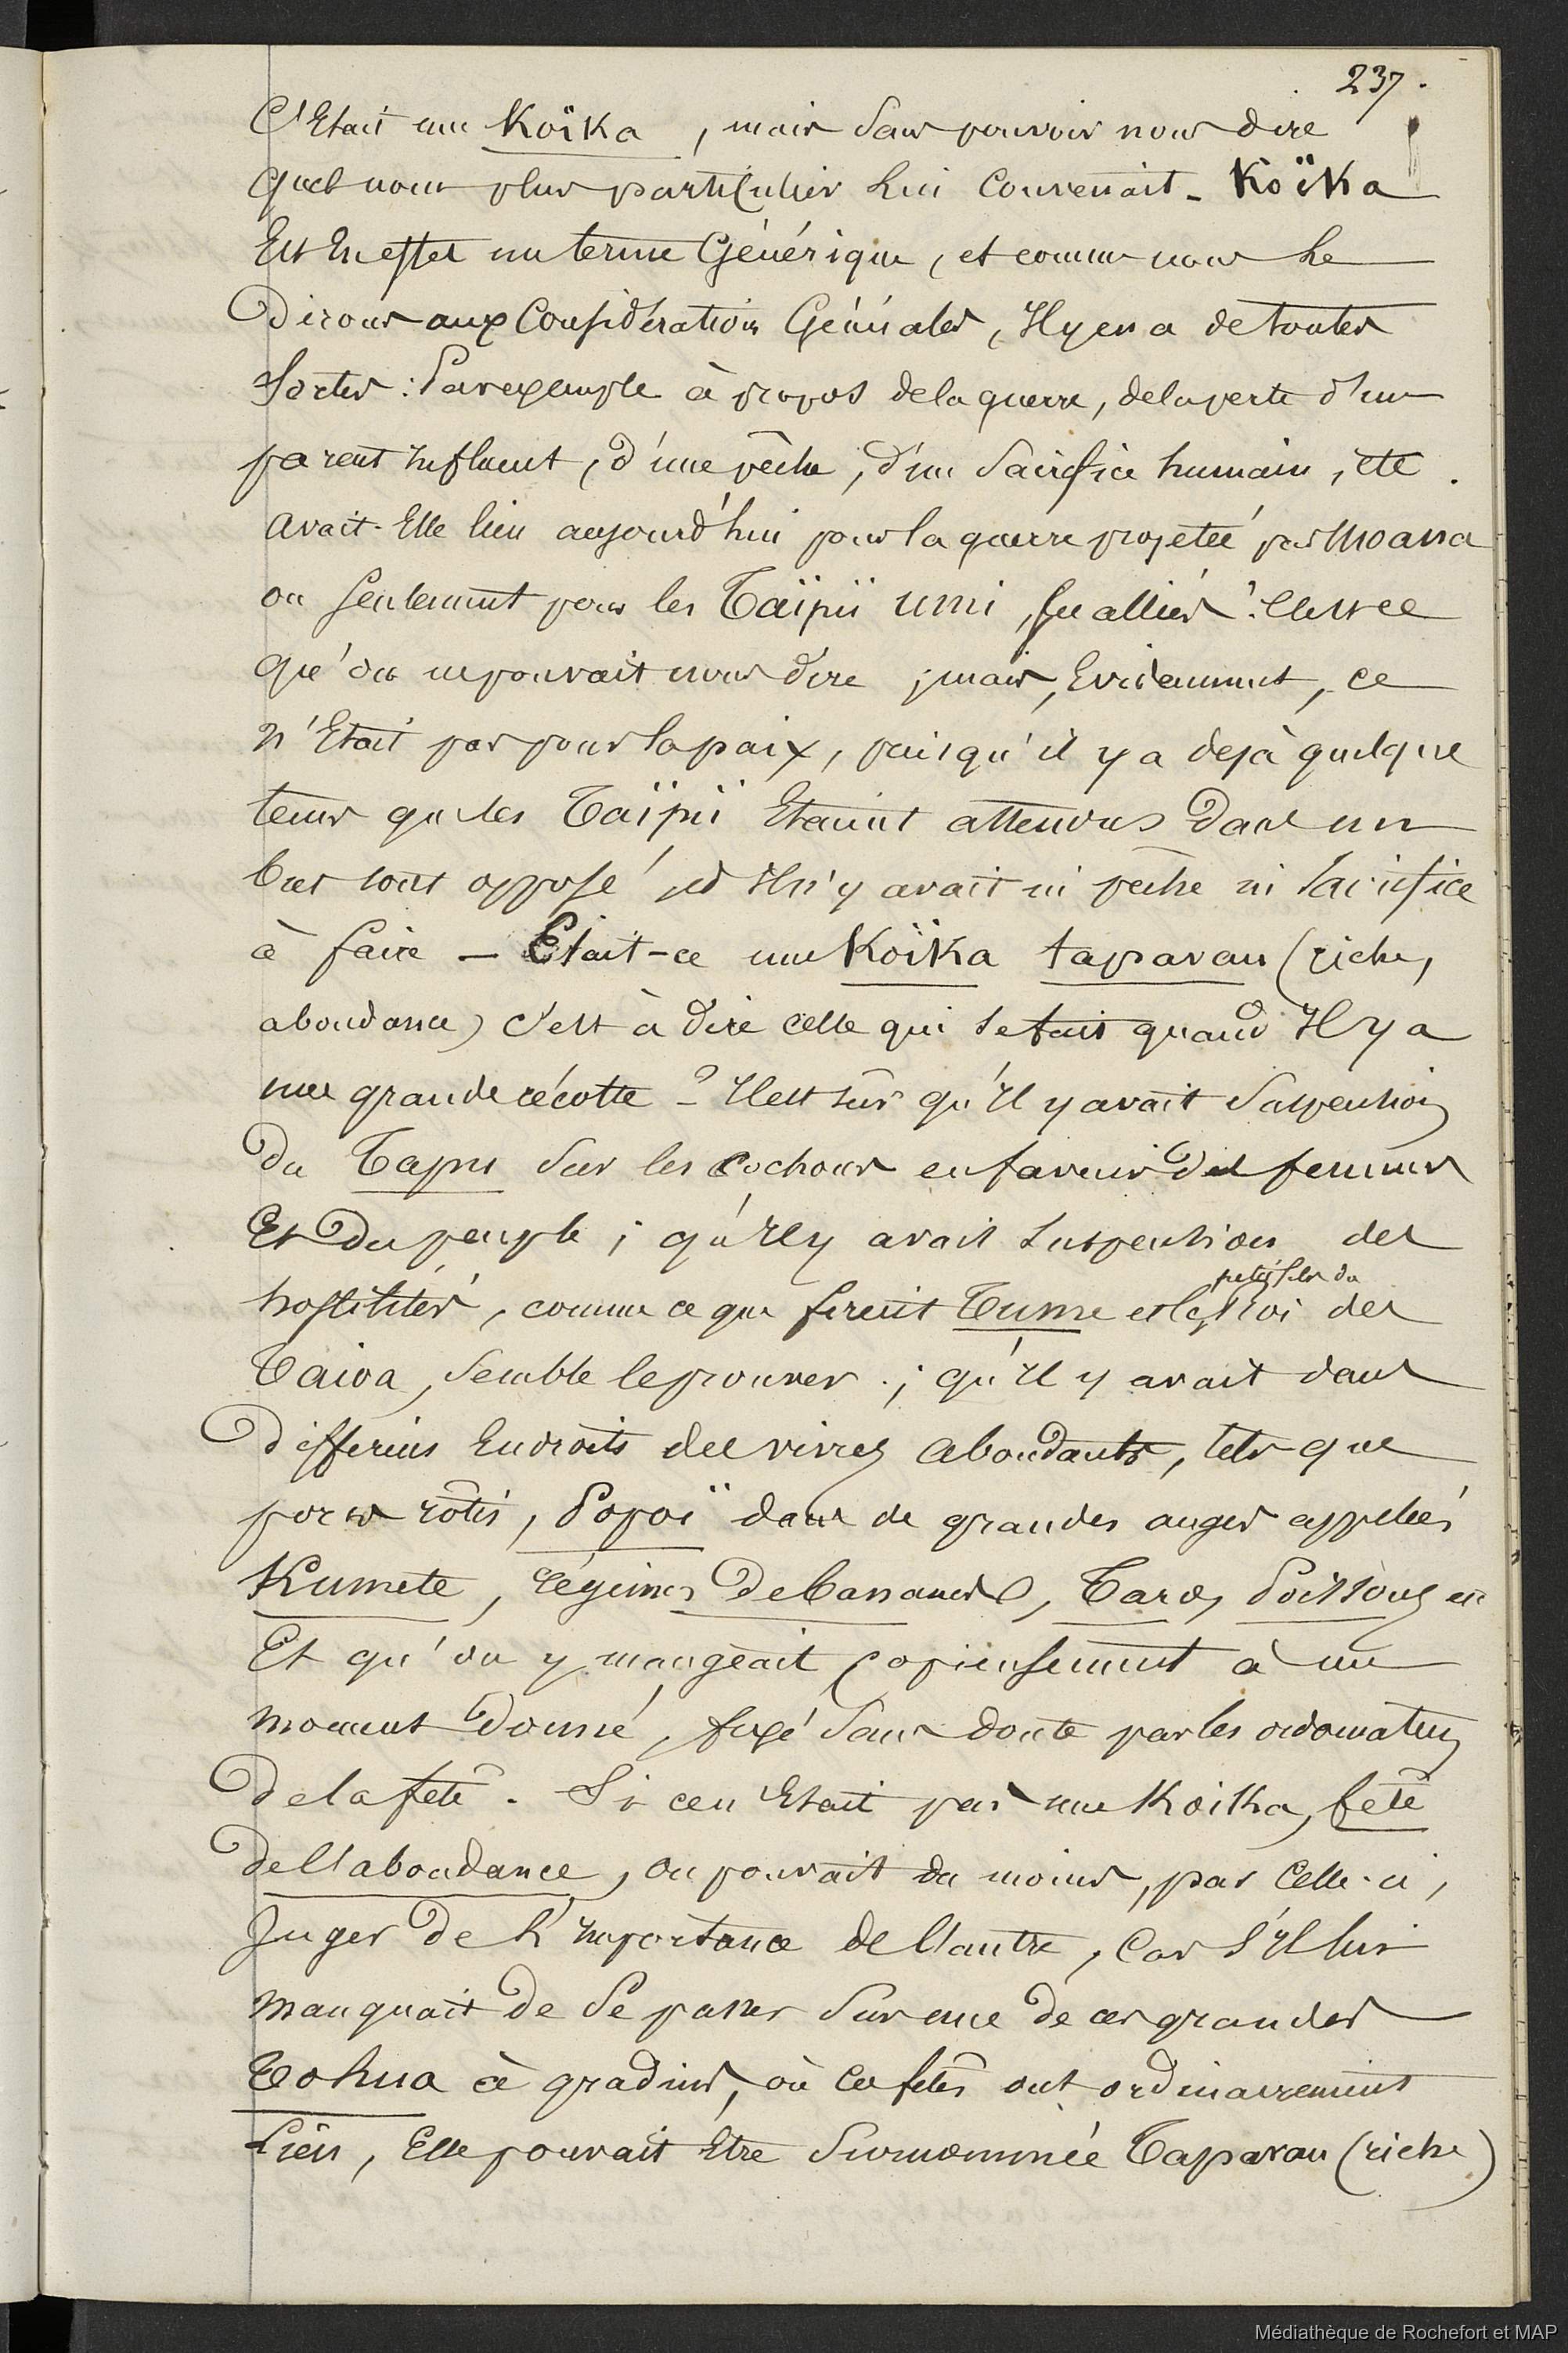 237.
C'Etait une Koïka, mais sans pouvoir nous dire
quel nom plus particulier lui convenait - Koïka
Est En effet un terme Générique, et comme nous le
Dirons aux Considérations Générales, Il y en a de toutes
Sortes : Par exemple à propos de la guerre, de la perte d'un
parent Influent, d'une pêche, d'un Sacrifice humain, etc.
avait-Elle lieu aujourd'hui pour la guerre projetée par Moana
ou Seulement pour les Taïpii umi, ses alliés ? C'est ce
qu'on ne pouvait nous dire ; mais, Evidemment, ce
n'Etait pas pour la paix, puisqu'il y a dejà quelque
tems que les Taïpii Etaient attendus Dans un
but tout opposé, et Il n'y avait ni pêche ni Sacrifice
à faire — Etait-ce une Koïka tapavau (riche,
abondance) c'est à dire celle qui se fait quand Il y a
une grande récolte ? - Il est sûr qu'Il y avait Suspension
Du Tapu Sur les cochons en faveur des femmes
Et Du peuple ; qu'Il y avait Suspension des
hostilités, comme ce que firent Tume et le petit fils du Roi des
Taioa, Semble le prouver ; qu'Il y avait dans
Differens Endroits des vivres abondants, tels que
porcs rôtis, Popoï dans de grandes auges appelées
Kumete, régimes De bananes, Taro, Poissons etc
Et qu'on y mangeait copieusement à un
moment Donné, fixé Sans doute par les ordonnateurs
De la fête. Si ce n'Etait pas une Koika, fête
de l'abondance, on pouvait du moins, par Celle-ci,
Juger De l'Importance de l'autre, Car S'Il lui
manquait De Se passer Sur une De ces grandes
Tohua à gradins, où Ces fêtes ont ordinairement
Lieu, Elle pouvait Être Surnommée Tapavau (riche)
Médiathèque de Rochefort et MAP